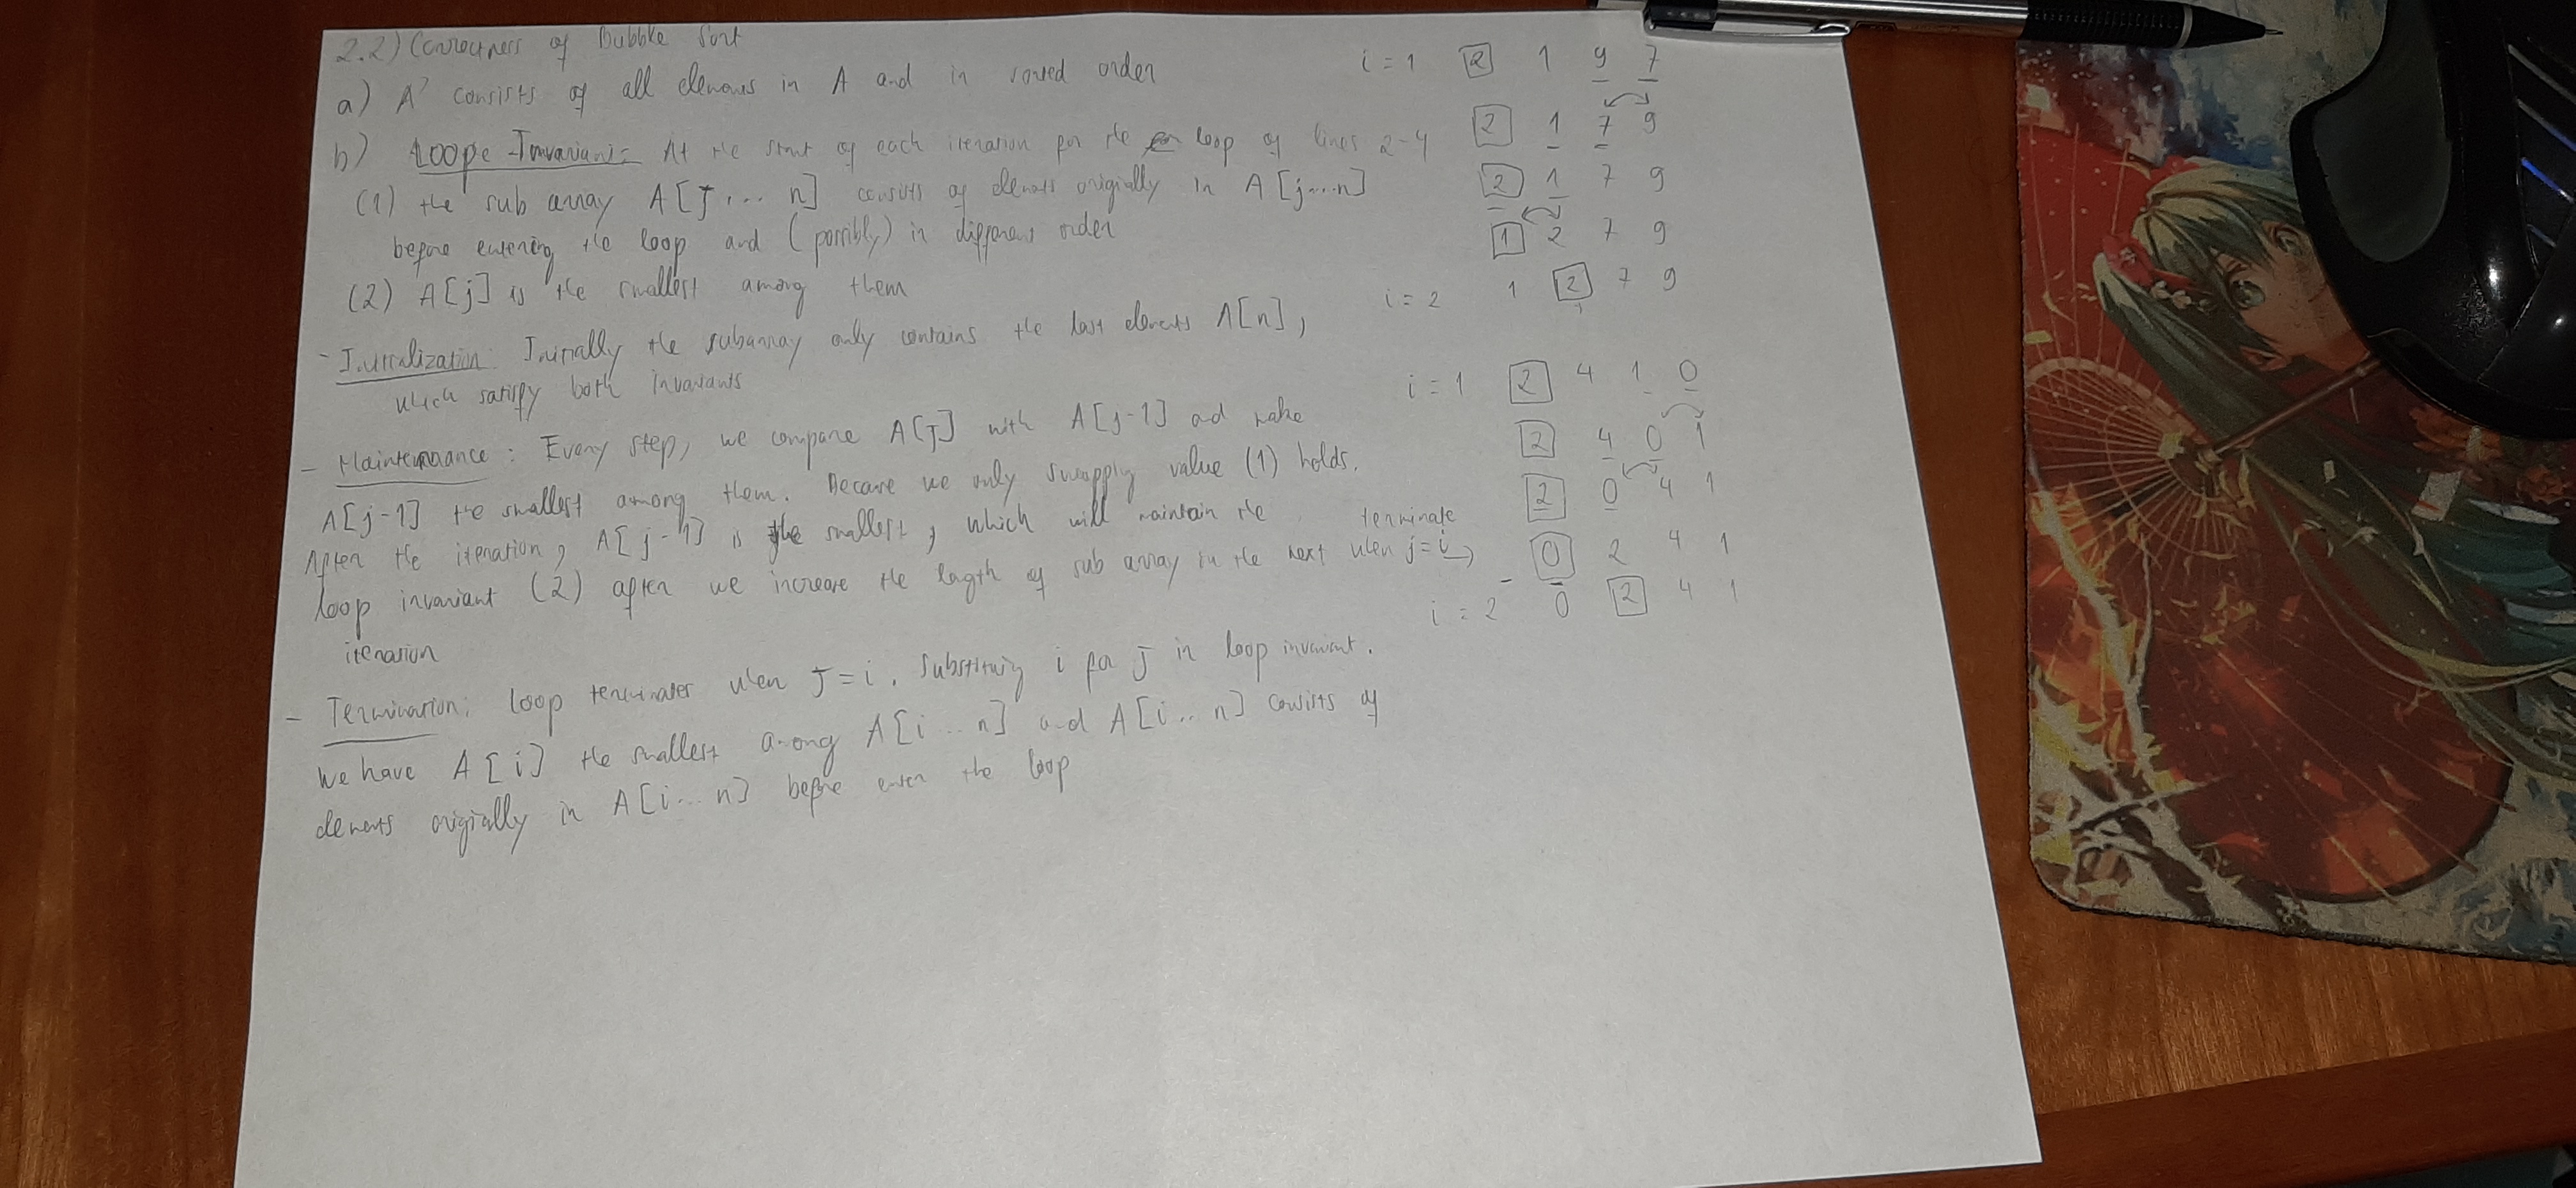 2.2) Correctness of Bubble Sort
a) A' consists of all elemens in A and in sorted order
b) Loope-Invariant: At the start of each iteration for the for loop of lines 2-4
(1) the sub array A[j... n] consists of elements originally in A[j...n]
before entering the loop and (possibly) in different order
(2) A[j] is the smallest among them
- Initialization: Initially the subarray only contains the last elements A[n],
which satisfy both invariants
- Maintenance: Every step, we compare A[j] with A[j-1] and make
A[j-1] the smallest among them. Because we only swapping value (1) holds.
After the iteration, A[j-1] is the smallest, which will maintain the
loop invariant (2) after we increase the length of sub array in the next
iteration
- Termination: Loop terminates when j=i. Substituing i for j in loop invariant.
We have A[i] the smallest among A[i...n] and A[i..n] consists of
elements originally in A[i...n] before enter the loop
i = 1 2 1 9 7
2 1 7 9
2 1 7 9
1 2 7 9
i = 2 1 2 7 9
i = 1 2 4 1 0
2 4 0 1
2 0 4 1
terminate
when j=i → 0 2 4 1
i = 2 0 2 4 1